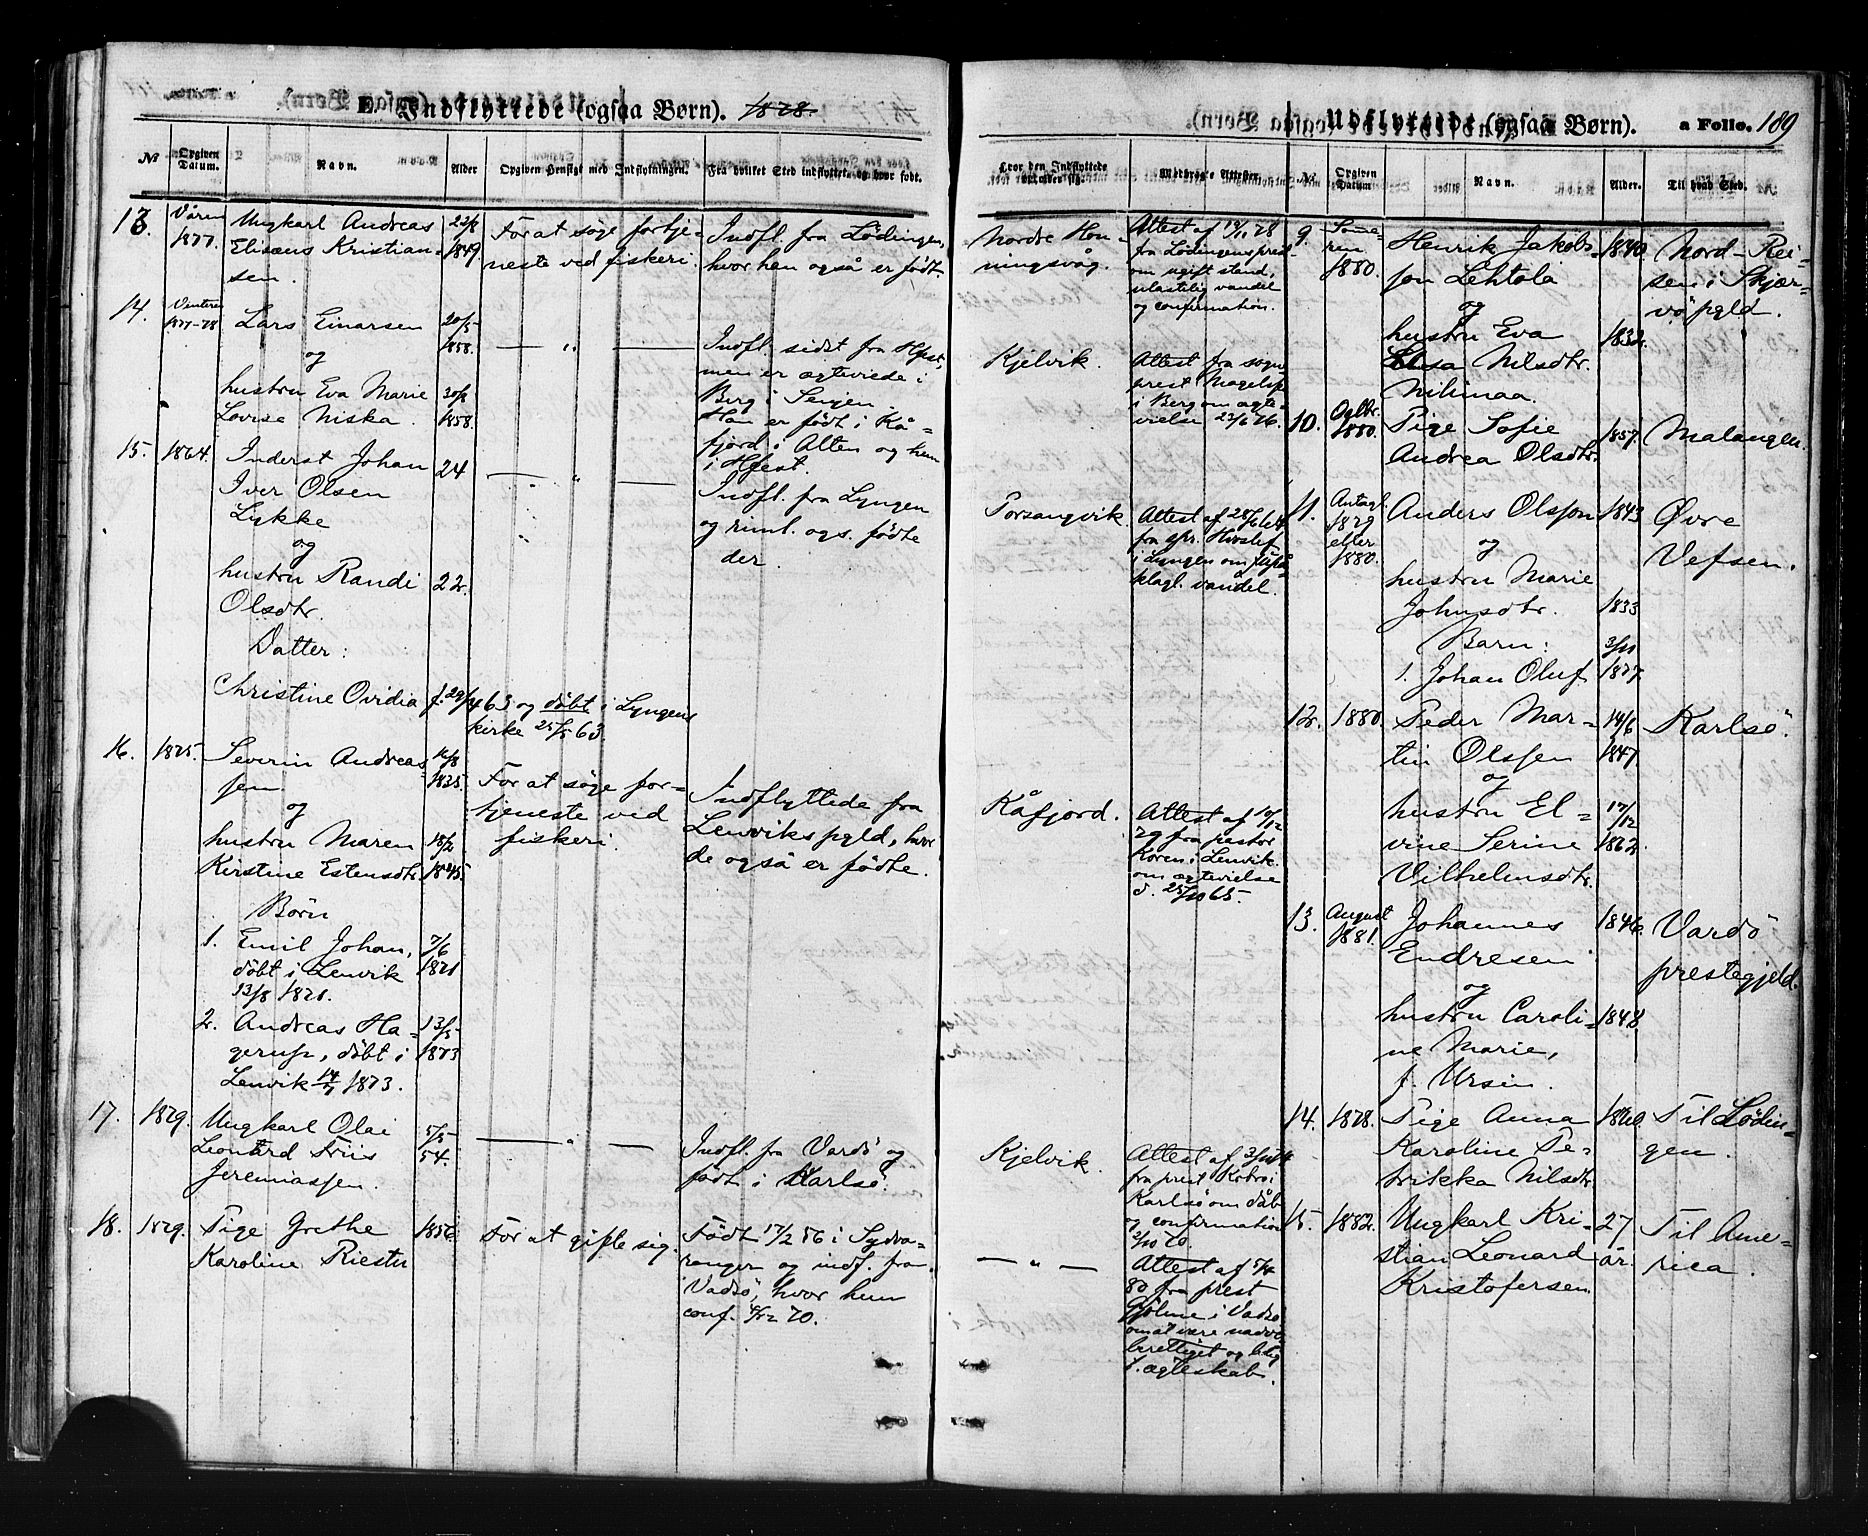 E. Indflyttede (ogsaa Børn). 1878.
№
Opgiven Datum.
Navn.
Alder
Opgiven Hensigt med Indflytningen.
Fra hvilket Sted indflyttet, og hvor født.
13.
Våren
1877.
Ungkarl Andreas
Elisæus Kristian-
sen.
22/8
1849.
For at søge fortje-
neste ved fiskeri
Indfl. fra Lødingen,
hvor han også er født
14.
Vinteren
1877-78
Lars Einarsen
og
hustru Eva Marie
Lovise Niska.
20/5
1858.
1858.
— " —
Indfl. sidst fra Hfest,
men er ægteviede i
Berg i Senjen.
Han er født i Kå-
fjord i Alten og hun
i Hfest.
15.
1864.
Inderst Johan
Iver Olsen
Lykke
og
hustru Randi
Olsdtr.
Datter:
Christine Ovidia
24
22.
— " —
Indfl. fra Lyngen
og riml. ogs. fødte
der.
f. 29/4 63 og døbt i Lyngens
kirke 25/5 63.
16.
1875.
Severin Andreas-
sen
og
hustru Maren
Kirstine Estensdtr
Børn
1. Emil Johan,
døbt i Lenvik
13/8 1871.
2. Andreas Ha-
gerup, døbt i
Lenvik 14/7 1873.
1835.
18/2
1845.
7/6
1871
13/5
1873
For at søge for-
tjeneste ved
fiskeri.
Indflyttede fra
Lenviks pgld, hvor
de også er fødte.
17.
1879.
Ungkarl Olai
Leonard Friis
Jeremiassen.
5/5
54.
— " —
Indfl. fra Vardø og
født i Karlsø.
18.
1879.
Pige Grethe
Karoline Riesto
1856.
For at gifte sig.
Født 17/2 56 i Sydva-
ranger og indf. fra
Vadsø, hvor hun
conf. 70.
Udflyttede (ogsaa Børn).
a Folio. 189
Hvor den Indflyttede opholder sig.
Medbragte Attester.
№.
Opgiven Datum
Navn.
Alder.
Til hvad Sted.
Nordre Hon-
ningsvåg.
Attest af 19/11 78
fra Lødingens prest
om ugift stand,
ulastelig vandel
og confirmation.
Kjelvik.
Attest fra sogne
prest Magelsen
i Berg om ægte-
vielse 23/6 76.
Porsangvik.
Attest af 28/6 64
fra spr. Hvoslef
i Lyngen om upå-
klagl. vandel.
Kåfjord.
Attest af 10/12
79 fra pastor
Koren i Lenvik
om ægtevielse
d. 25/10 65.
Kjelvik.
Attest af
fra prest
Karlsø om dåb
og confirmation
70.
— " —
Attest af 5/4
80 fra prest
Gjølme i Vadsø
om at være nadver
berettiget og ledig
f. ægteskab.
9.
Somme-
ren
1880.
Henrik Jakob-
sen Lehtola
og
hustru Eva
Elisa Nilsdtr.
Nilimaa.
1840.
1832.
Nord-Rei-
sen i Skjær-
vø pgld.
10.
Oktbr.
1880.
Pige Sofie
Andrea Olsdtr.
1857.
Malangen.
11.
Antagl.
1879
eller
1880.
Anders Olsson
og
hustru Marie
Johnsdtr.
Barn:
1. Johan Oluf
1843
1833
3/11
1877.
Øvre
Vefsen.
12.
1880.
Peder Mar-
tin Olsen
og
hustru El-
vine Serine
Vilhelmsdtr.
14/6
1847
17/12
1862.
Karlsø.
13.
August
1881.
Johannes
Endresen
og
hustru Caroli-
ne Marie,
f. Ursin.
1846.
1848
Vardø
prestegjeld.
14.
1878.
Pige Anna
Karoline Pe-
trikka Nilsdtr
1860.
Til Lødin-
gen.
15.
1882.
Ungkarl Kri-
stian Leonard
Kristofersen
27
år.
Til Ame-
rica.